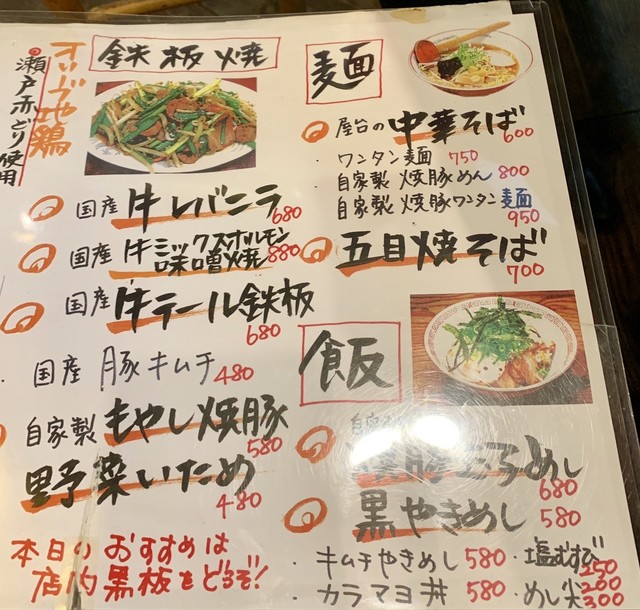 鉄板焼
瀬戸赤どり使用
国産 牛レバニラ 680
国産 牛ミックスホルモン
味噌焼 880
国産 牛テール鉄板 680
国産 豚キムチ 480
自家製 もやし焼豚 580
野菜いため 480
本日の おすすめは
店内黒板をどうぞ!
麺
屋台の 中華そば 600
・ワンタン麺 750
・自家製 焼豚めん 800
・自家製 焼豚ワンタン麺 950
五目焼そば 700
飯
玉子めし 680
黒やきめし 580
・キムチやきめし 580
・塩むすび
・カラマヨ丼 580
・めし 200 300